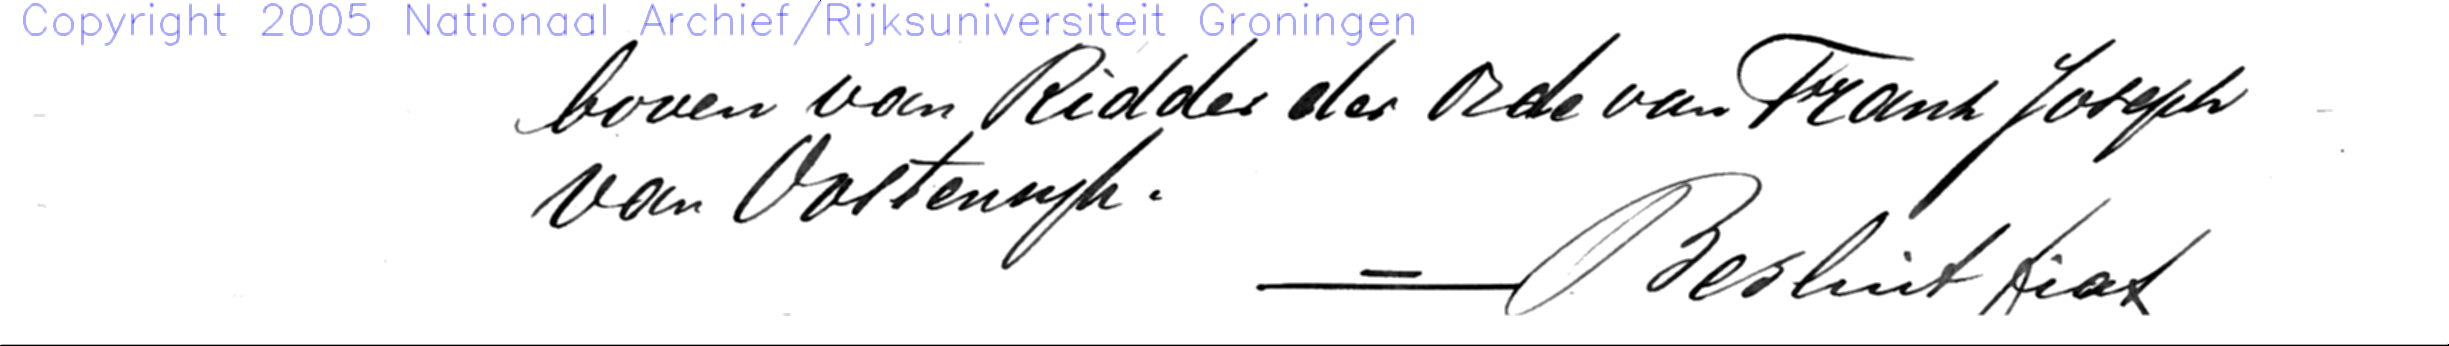 Copyright 2005 Nationaal Archief/Rijksuniversiteit Groningen
boven van Ridder der Orde van Frans Joseph
van Oostenrijk.
Besluit fiat